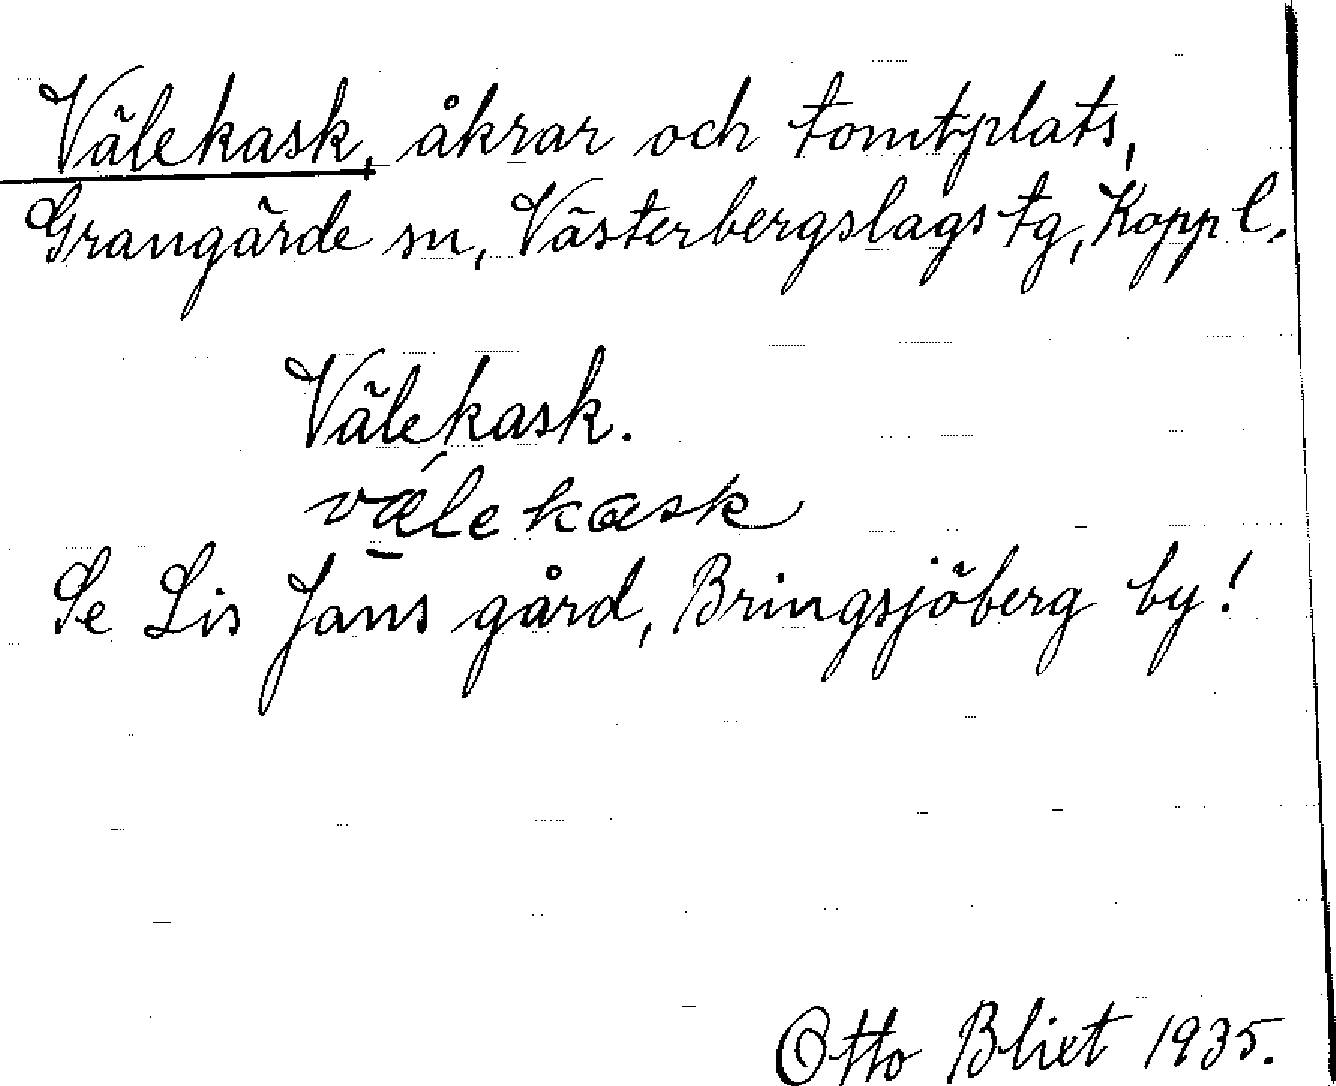 Välekask, åkrar och tomtplats,
Grangärde sn, Västerbergslags tg, Kopp l.
Välekask.
vǽlekask
Se Lis Jans gård, Bringsjöberg by!
Otto Blixt 1935.